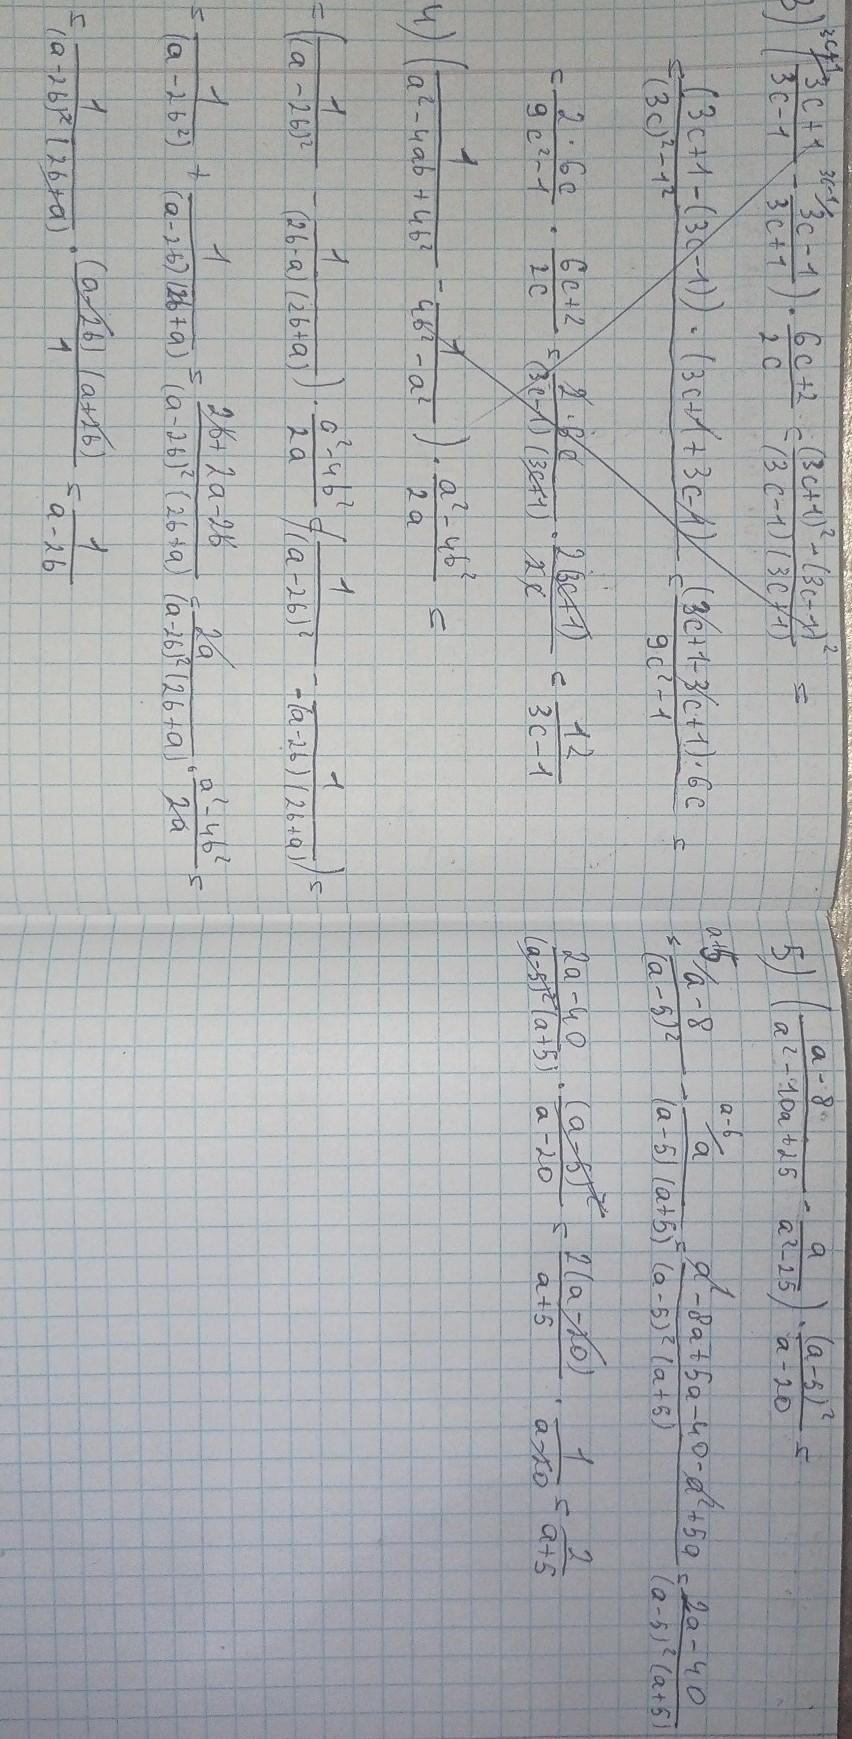 3) (3c+1/3c-1 - 3c-1/3c+1) · 6c+2/2c = (3c+1)² - (3c-1)²/(3c-1)(3c+1) =
= (3c+1-(3c-1)) · (3c+1+3c-1)/(3c)²-1² = (3c+1-3c+1)·6c/9c²-1 =
= 2·6c/9c²-1 · 6c+2/2c = 2·6c/(3c-1)(3c+1) · 2(3c+1)/2c = 12/3c-1
4) (1/a²-4ab+4b² - 1/4b²-a²) · a²-4b²/2a =
= (1/(a-2b)² - 1/(2b-a)(2b+a)) · a²-4b²/2a = (1/(a-2b)² - 1/-(a-2b)(2b+a)) =
= 1/(a-2b²) + 1/(a-2b)(2b+a) = 2b+2a-2b/(a-2b)²(2b+a) = 2a/(a-2b)²(2b+a) · a²-4b²/2a =
= 1/(a-2b)²(2b+a) · (a-2b)(a+2b)/1 = 1/a-2b
5) (a-8/a²-10a+25 - a/a²-25) · (a-5)²/a-20 =
= a-8/(a-5)² - a/(a-5)(a+5) = a²-8a+5a-40-a²+5a/(a-5)²(a+5) = 2a-40/(a-5)²(a+5)
2a-40/(a-5)²(a+5) · (a-5)²/a-20 = 2(a-20)/a+5 · 1/a-20 = 2/a+5